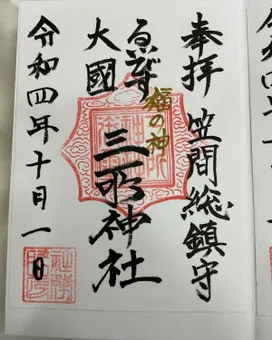 奉拝 笠間総鎮守
ゑびす
大國
福の神
三所神社
令和四年十月一日